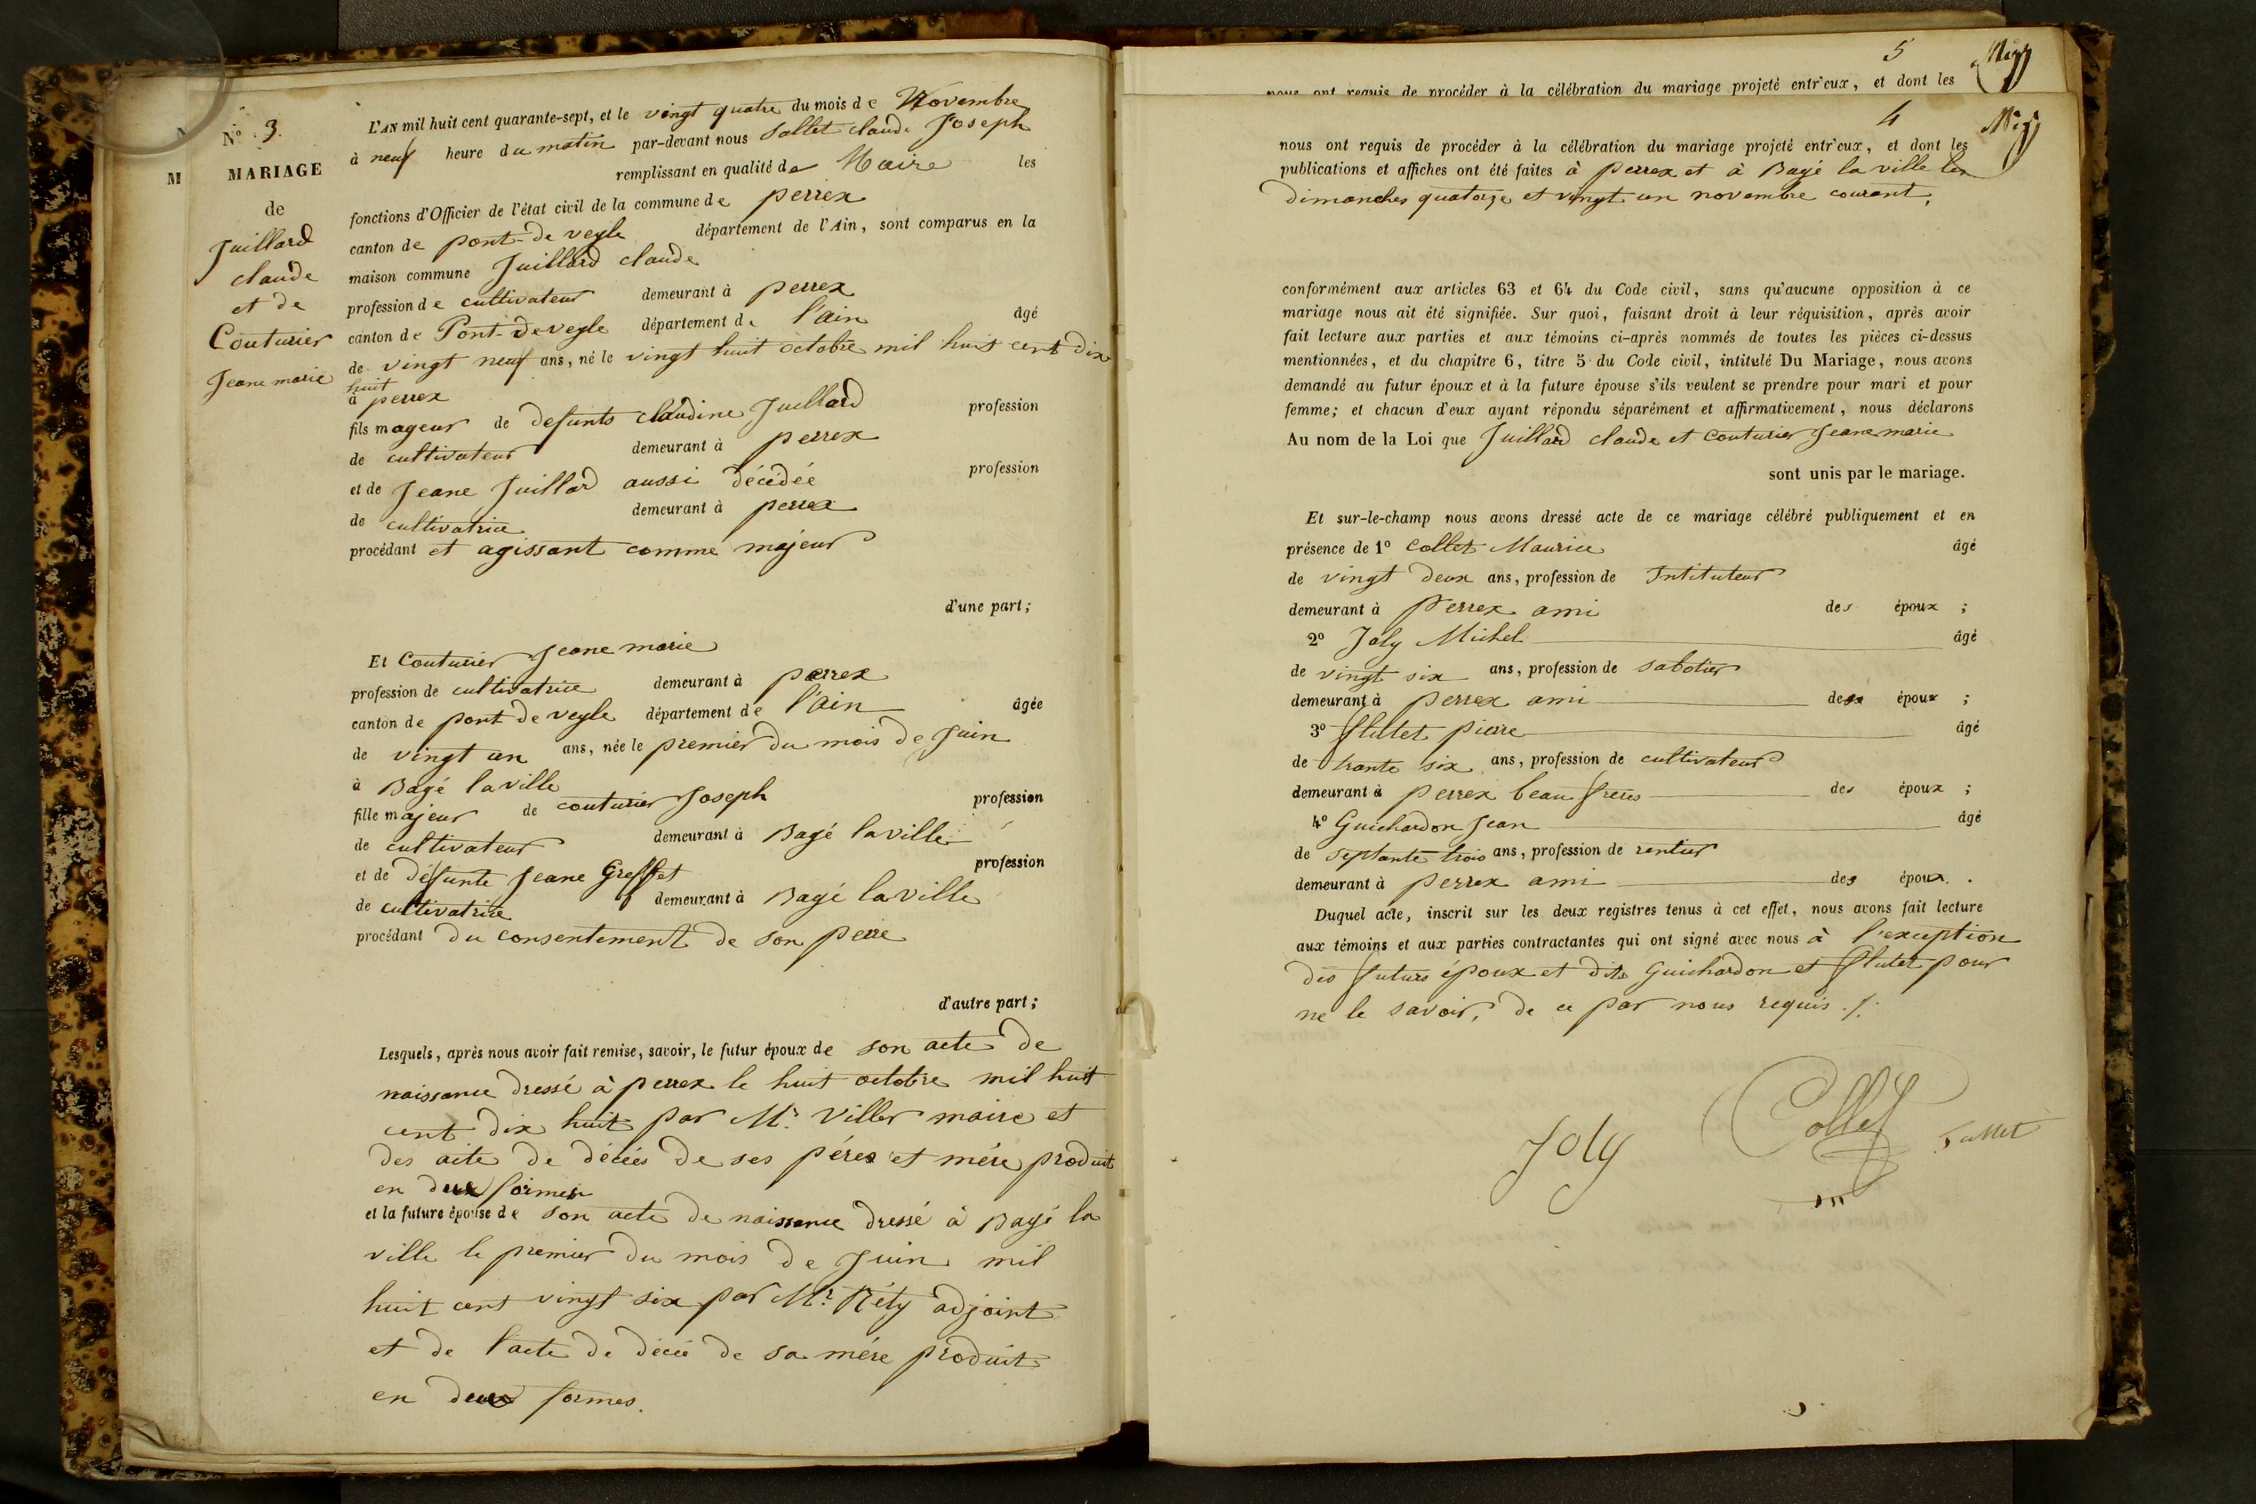 N.º 3.
MARIAGE
de
Juillard
claude
et de
Couturier
Jeane marie
M
L'AN mil huit cent quarante-sept, et le vingt quatre du mois de Novembre
à neuf heure du matin par-devant nous Sallet claude Joseph
remplissant en qualité de Maire les
fonctions d'Officier de l'état civil de la commune de perrex
canton de pont-de veyle département de l'Ain, sont comparus en la
maison commune Juillard claude
profession de cultivateur demeurant à perrex
canton de Pont-de veyle département de l'ain âgé
de vingt neuf ans, né le vingt huit octobre mil huit cent dix
huit
à perrex
fils mageur de defunts claudine Juillard profession
de cultivateur demeurant à perrex
et de Jeane Juillard aussi décédée profession
de cultivatrice demeurant à perrex
procédant et agissant comme majeur
d'une part;
Et Couturier Jeane marie
profession de cultivatrice demeurant à perrex
canton de pont de veyle département de l'ain âgée
de vingt un ans, née le premier du mois de Juin
à Bagé la ville
fille majeur de couturier Joseph profession
de cultivateur demeurant à Bagé la ville
et de défunte Jeane Greffet profession
de cultivatrice demeurant à Bagé la ville
procédant du consentement de son perre
d'autre part;
Lesquels, après nous avoir fait remise, savoir, le futur époux de son acte de
naissance dressé à perrex le huit octobre mil huit
cent dix huit par Mr. Viller maire et
des acte de décées de ses péres et mére produit
en deux formes
et la future épouse de son acte de naissance dressé à Bagé la
ville le premier du mois de Juin mil
huit cent vingt six par Mr. Réty adjoint
et de l'acte de décée de sa mére produit
en deux formes.
5
nous ont requis de procéder à la célébration du mariage projeté entr'eux, et dont les
4
nous ont requis de procéder à la célébration du mariage projeté entr'eux, et dont les
publications et affiches ont été faites à perrex et à Bagé la ville les
dimanches quatorze et vingt un novembre courant,
conformément aux articles 63 et 64 du Code civil, sans qu'aucune opposition à ce
mariage nous ait été signifiée. Sur quoi, faisant droit à leur réquisition, après avoir
fait lecture aux parties et aux témoins ci-après nommés de toutes les pièces ci-dessus
mentionnées, et du chapitre 6, titre 5 du Code civil, intitulé Du Mariage, nous avons
demandé au futur époux et à la future épouse s'ils veulent se prendre pour mari et pour
femme; et chacun d'eux ayant répondu séparément et affirmativement, nous déclarons
Au nom de la Loi que Juillard claude et Couturier Jeane marie
sont unis par le mariage.
Et sur-le-champ nous avons dressé acte de ce mariage célébré publiquement et en
présence de 1º Collet Maurice âgé
de vingt deux ans, profession de Intituteur
demeurant à Perrex ami des époux ;
2º Joly Michel âgé
de vingt six ans, profession de sabotier
demeurant à perrex ami des époux ;
3º flutet pierre âgé
de trante six ans, profession de cultivateur
demeurant à perrex beau freres des époux ;
4º Guichardon Jean âgé
de septante trois ans, profession de rentier
demeurant à perrex ami des époux.
Duquel acte, inscrit sur les deux registres tenus à cet effet, nous avons fait lecture
aux témoins et aux parties contractantes qui ont signé avec nous à l'exception
des futurs époux et dits Guichardon et flutet pour
ne le savoir, de ce par nous requis ./.
Joly Collet Sallet